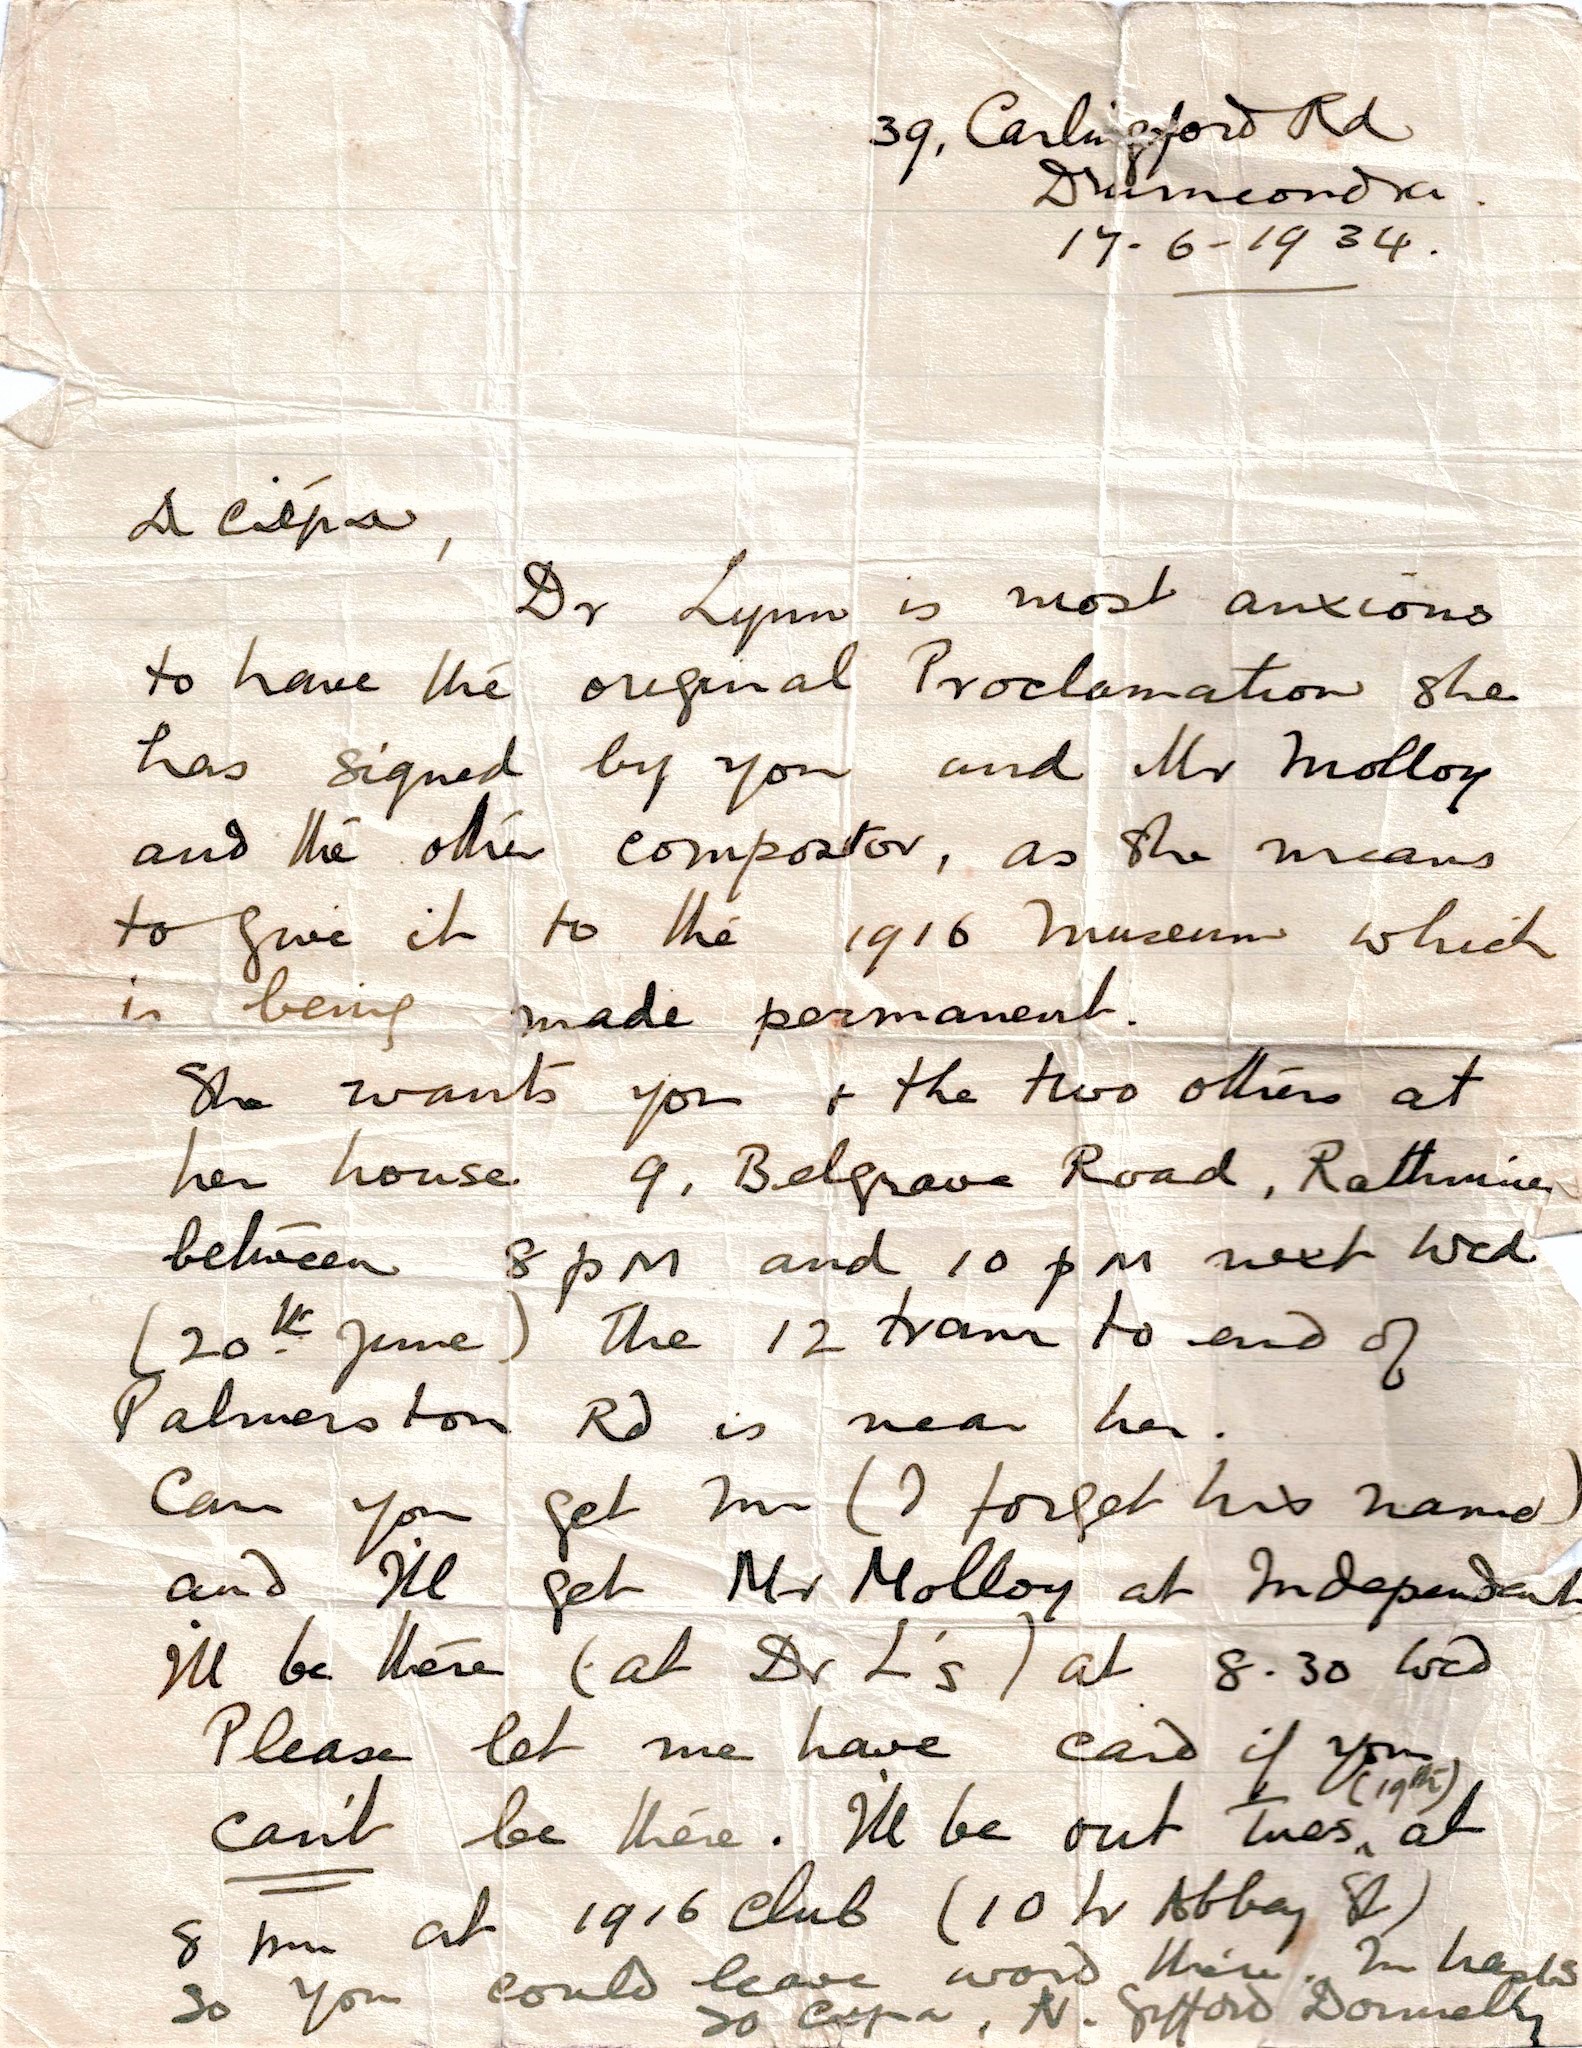 39, Carlingford Rd
Drumcondra.
17-6-1934.
A Ċ
Dr Lynn is most anxious
to have the original Proclamation she
has signed by you and Mr Molloy
and the other compositor, as she means
to give it to the 1916 Museum which
is being made permanent.
She wants you + the two others at
her house 9, Belgrave Road, Rathmines
between 8 pM and 10 pM next Wed
(20th June) The 12 tram to end of
Palmerston Rd is near her.
Can you get Mr (I forget his name)
and I'll get Mr Molloy at Independent
I'll be there (at Dr L's) at 8.30 Wed
Please let me have card if you
can't be there. I'll be out Tues (19th) at
8 pm at 1916 Club (10 Lr Abbey St)
so you could leave word there. In haste
Do N. Gifford Donnelly